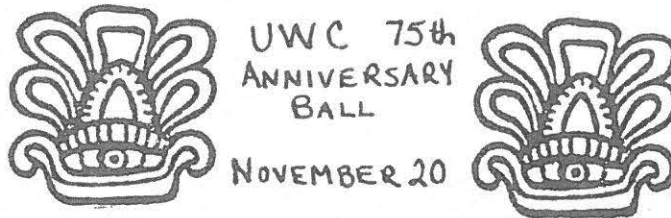 UWC 75th
ANNIVERSARY
BALL
NOVEMBER 20